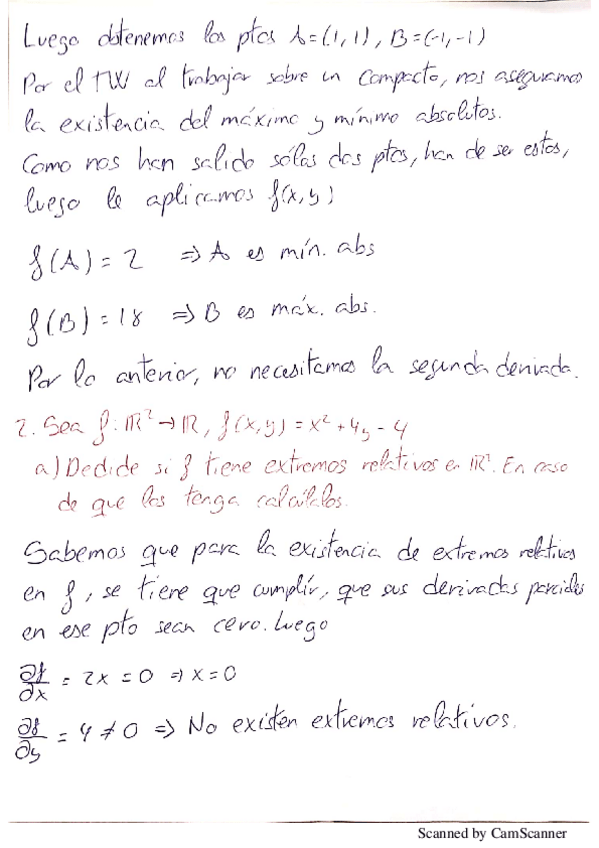 Luego obtenemos los ptos A=(1,1), B=(-1,-1)
Por el TW al trabajar sobre un compacto, nos aseguramos
la existencia del máximo y mínimo absolutos.
Como nos han salido sólos dos ptos, han de ser estos,
luego le aplicamos f(x,y)
f(A) = 2 ⇒ A es mín. abs
f(B) = 18 ⇒ B es máx. abs.
Por lo anterior, no necesitamos la segunda derivada.
2. Sea f: ℝ² → ℝ, f(x,y) = x² + 4y - 4
a) Decide si f tiene extremos relativos en ℝ². En caso
de que los tenga calcúlalos.
Sabemos que para la existencia de extremos relativos
en f, se tiene que cumplir, que sus derivadas parciales
en ese pto sean cero. Luego
∂f/∂x = 2x = 0 ⇒ x = 0
∂f/∂y = 4 ≠ 0 ⇒ No existen extremos relativos.
Scanned by CamScanner